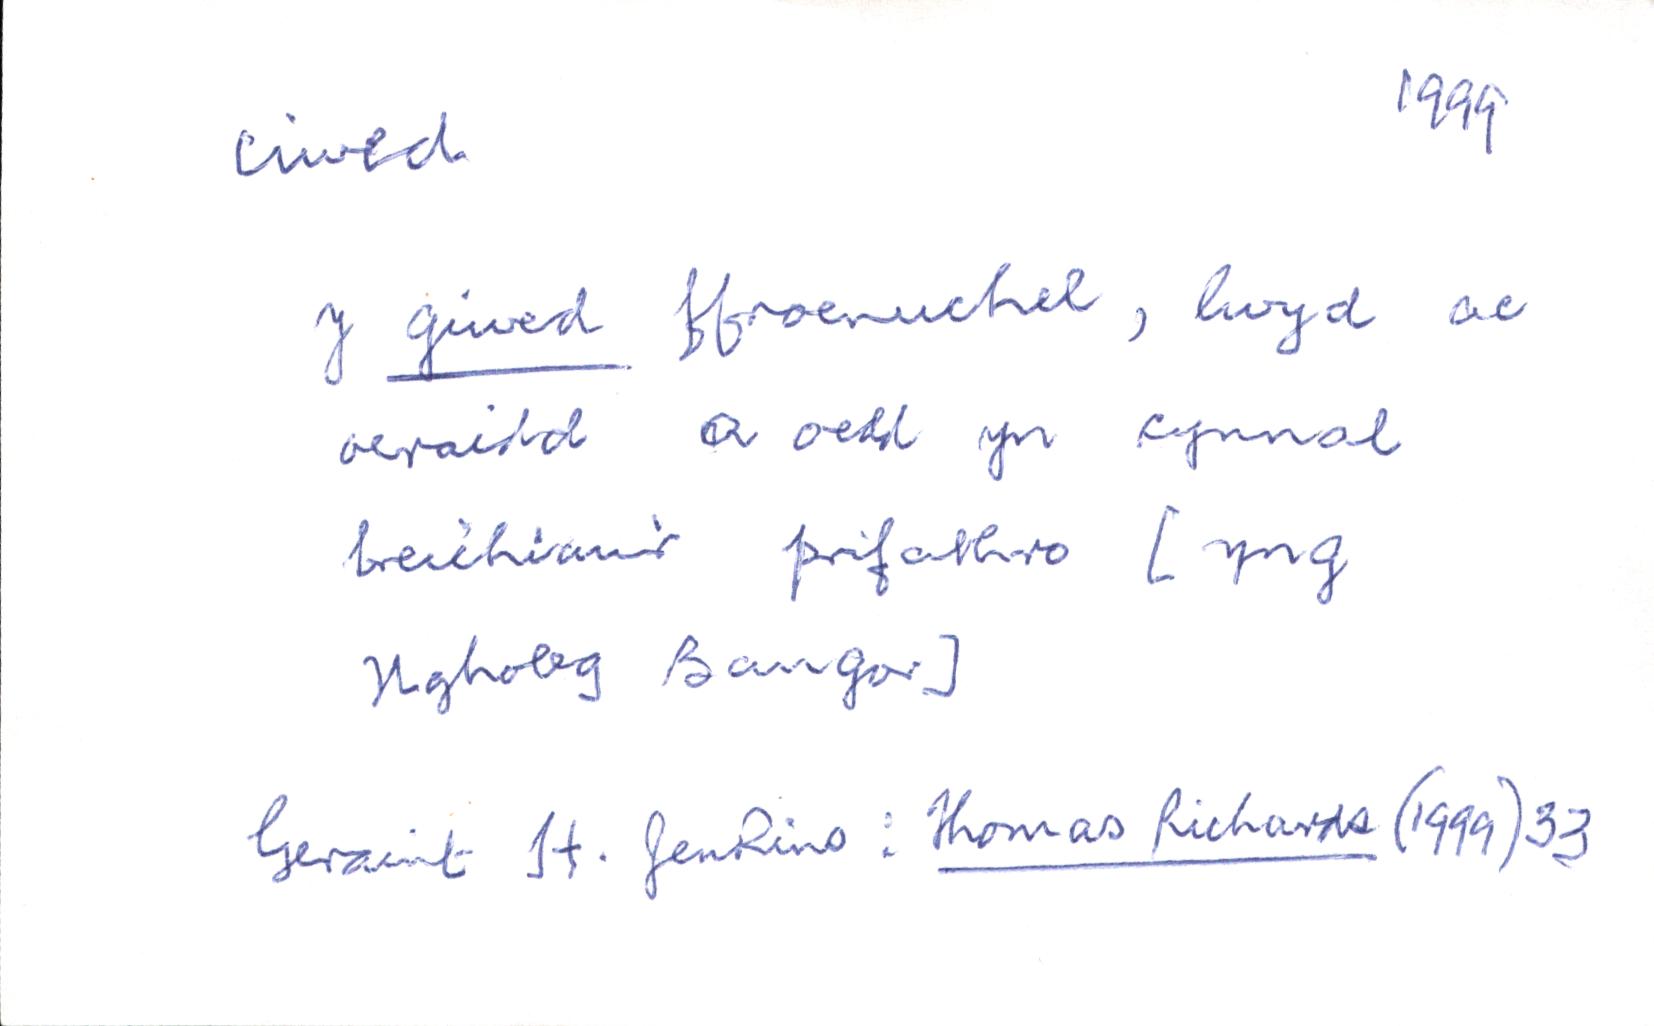 ciwed 1999
y giwed ffroenuchel, lwyd ac
oeraidd a oedd yn cynnal
breichiau'r prifathro [yng
Ngholeg Bangor]
Geraint H. Jenkins: Thomas Richards (1999) 33